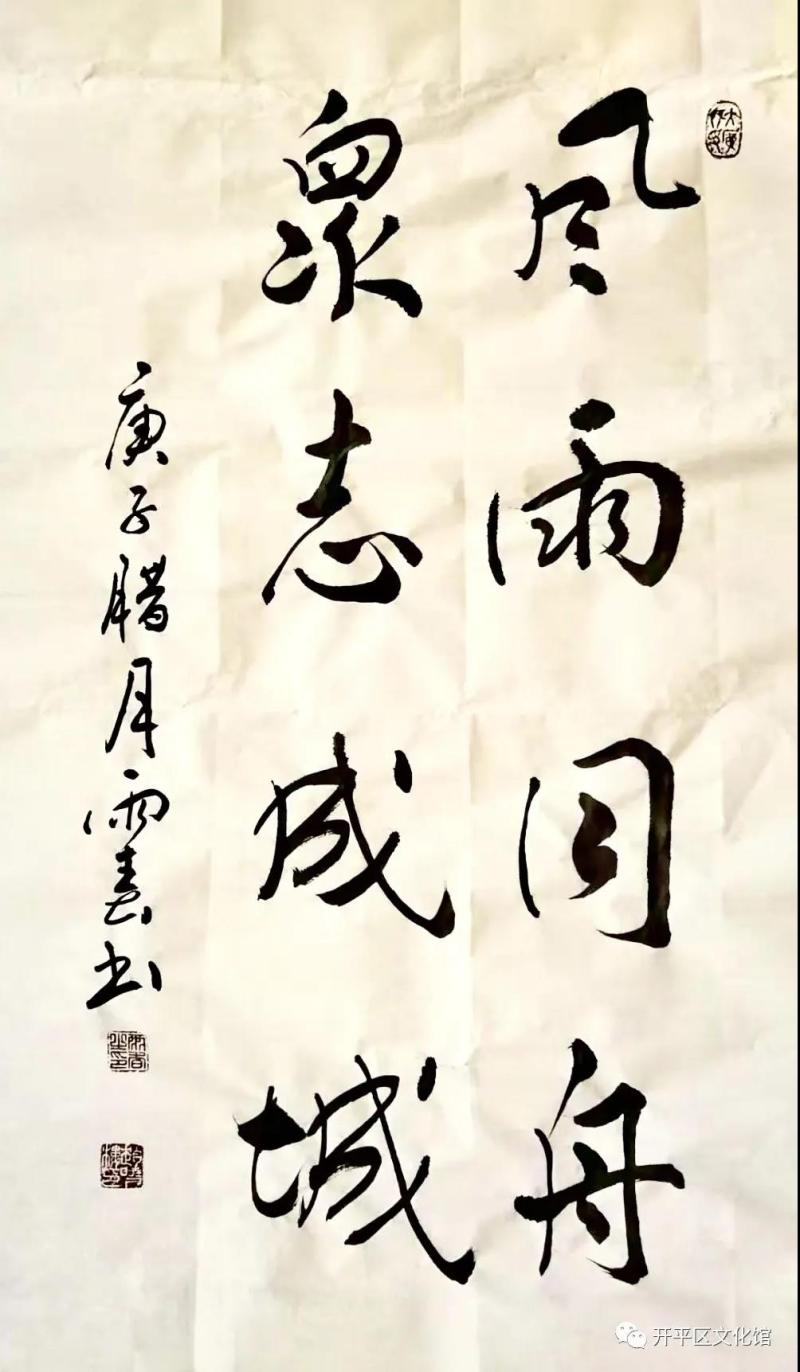 风雨同舟
众志成城
庚子腊月雨春书
开平区文化馆